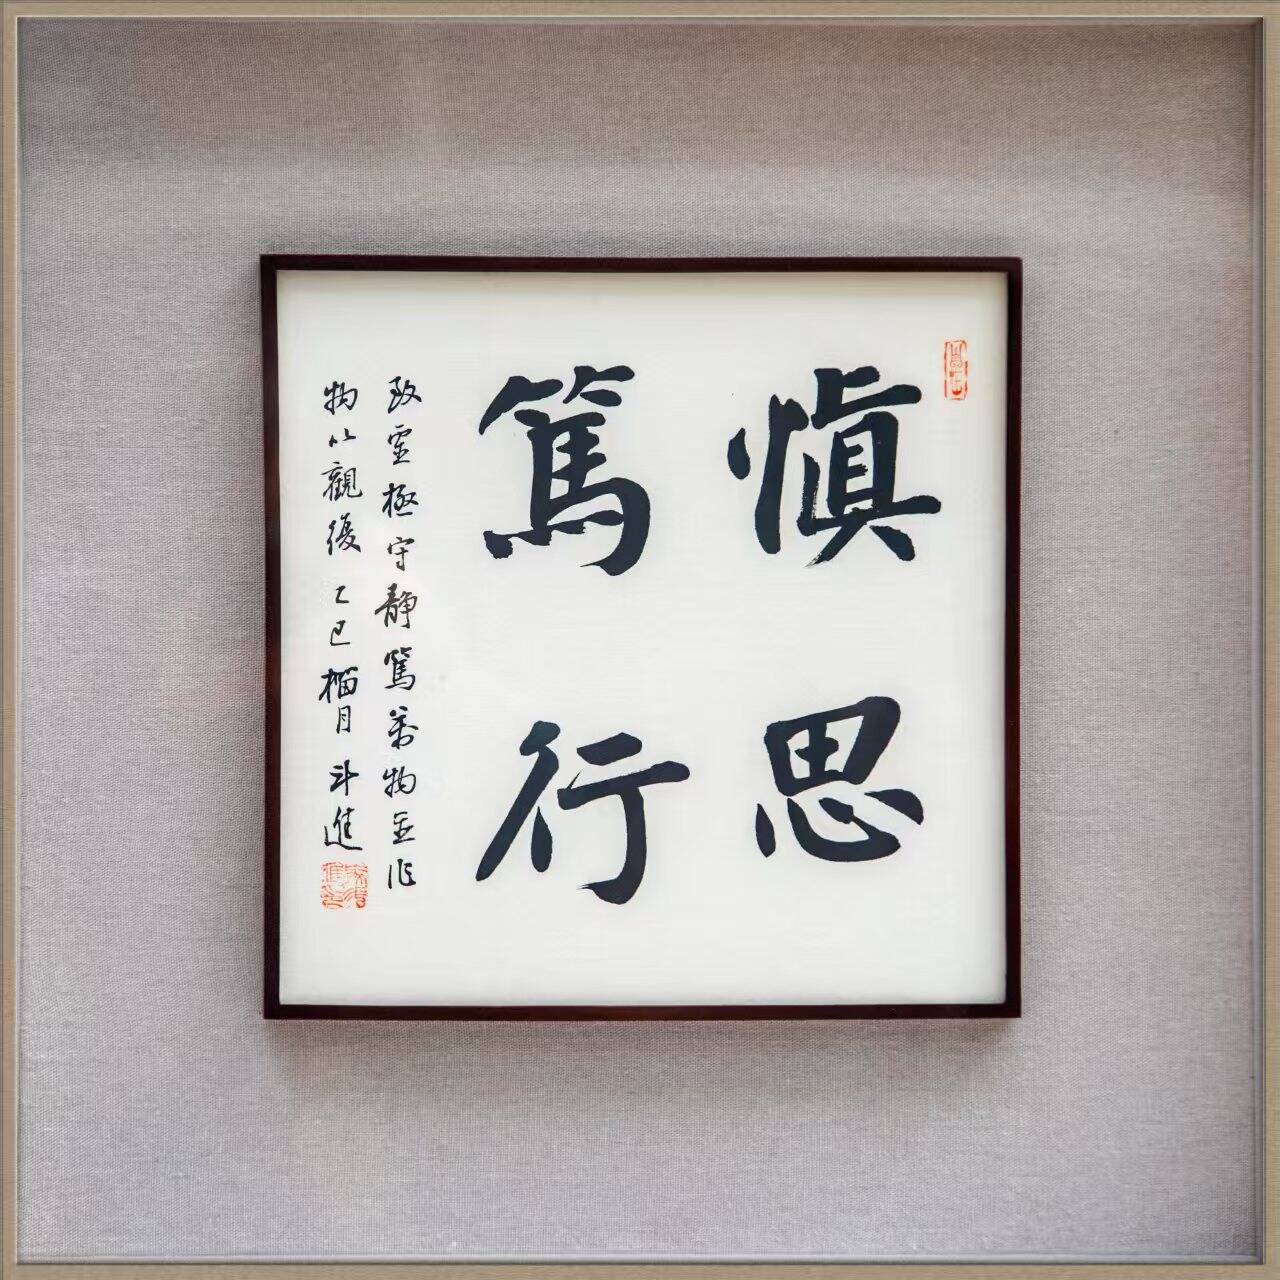 慎思
篤行
致虛極守靜篤萬物並作
物以觀復 乙巳榴月 斗進